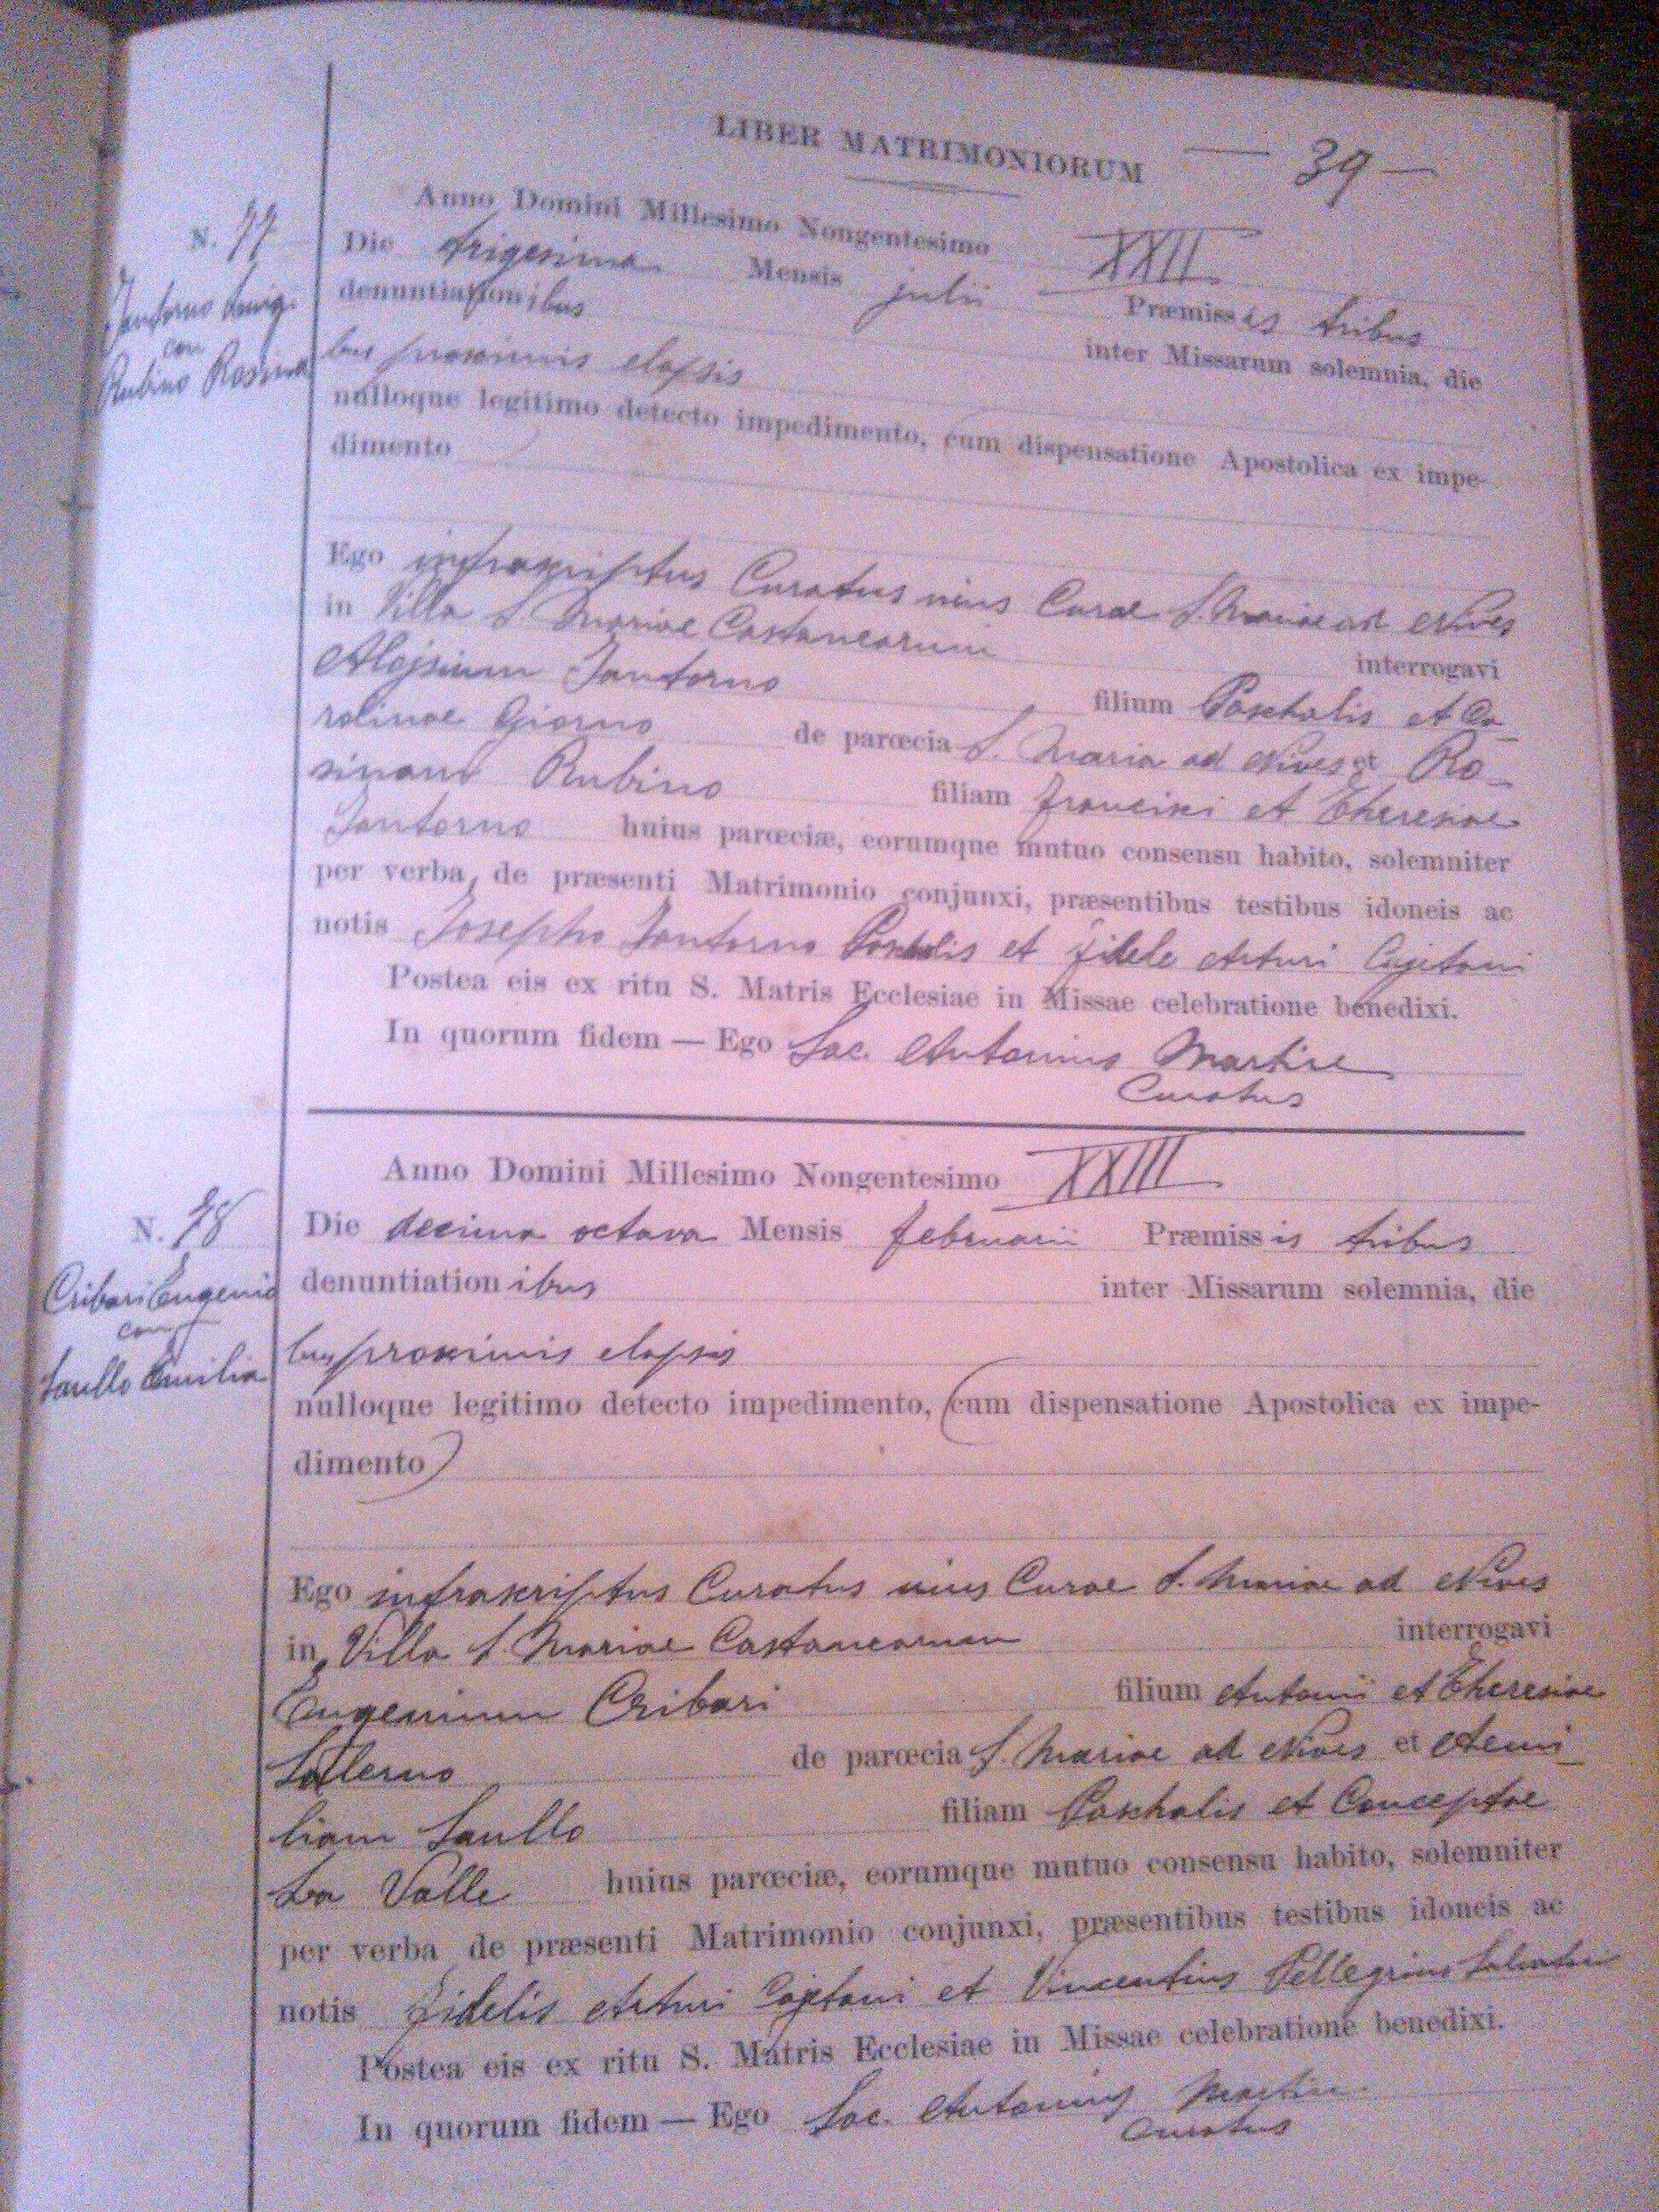 LIBER MATRIMONIORUM — 39 —
Anno Domini Millesimo Nongentesimo XXII
N. 77
Die trigesima Mensis julii Præmissis tribus
Santorno Luigi
con
Rubino Rosina
denuntiationibus inter Missarum solemnia, die
bus proximis elapsis
nulloque legitimo detecto impedimento, cum dispensatione Apostolica ex impe-
dimento
Ego infrascriptus Curatus uius Curae S. Mariae ad Nives
in Villa S. Mariae Castanearum interrogavi
Alojsium Santorno filium Paschalis et Ca-
rolinae Giorno de parœcia S. Maria ad Nives et Ro-
sinam Rubino filiam Francisci et Theresiae
Santorno huius parœciæ, eorumque mutuo consensu habito, solemniter
per verba, de præsenti Matrimonio conjunxi, præsentibus testibus idoneis ac
notis Josepho Santorno Paschalis et Fidele Arturi Cajetani
Postea eis ex ritu S. Matris Ecclesiae in Missae celebratione benedixi.
In quorum fidem — Ego Sac. Antonius Martire
Curatus
Anno Domini Millesimo Nongentesimo XXIII
N. 78
Die decima octava Mensis februarii Præmissis tribus
Cribari Eugenio
con
Saullo Emilia
denuntiationibus inter Missarum solemnia, die
bus proximis elapsis
nulloque legitimo detecto impedimento, (cum dispensatione Apostolica ex impe-
dimento)
Ego infrascriptus Curatus uius Curae S. Mariae ad Nives
in Villa S. Mariae Castanearum interrogavi
Eugenium Cribari filium Antonii et Theresiae
Salerno de parœcia S. Mariae ad Nives et Aemi-
liam Saullo filiam Paschalis et Conceptae
La Valle huius parœciæ, eorumque mutuo consensu habito, solemniter
per verba de præsenti Matrimonio conjunxi, præsentibus testibus idoneis ac
notis Fidelis Arturi Cajetani et Vincentius Pellegrino Salvatoris
Postea eis ex ritu S. Matris Ecclesiae in Missae celebratione benedixi.
In quorum fidem — Ego Sac. Antonius Martire
Curatus